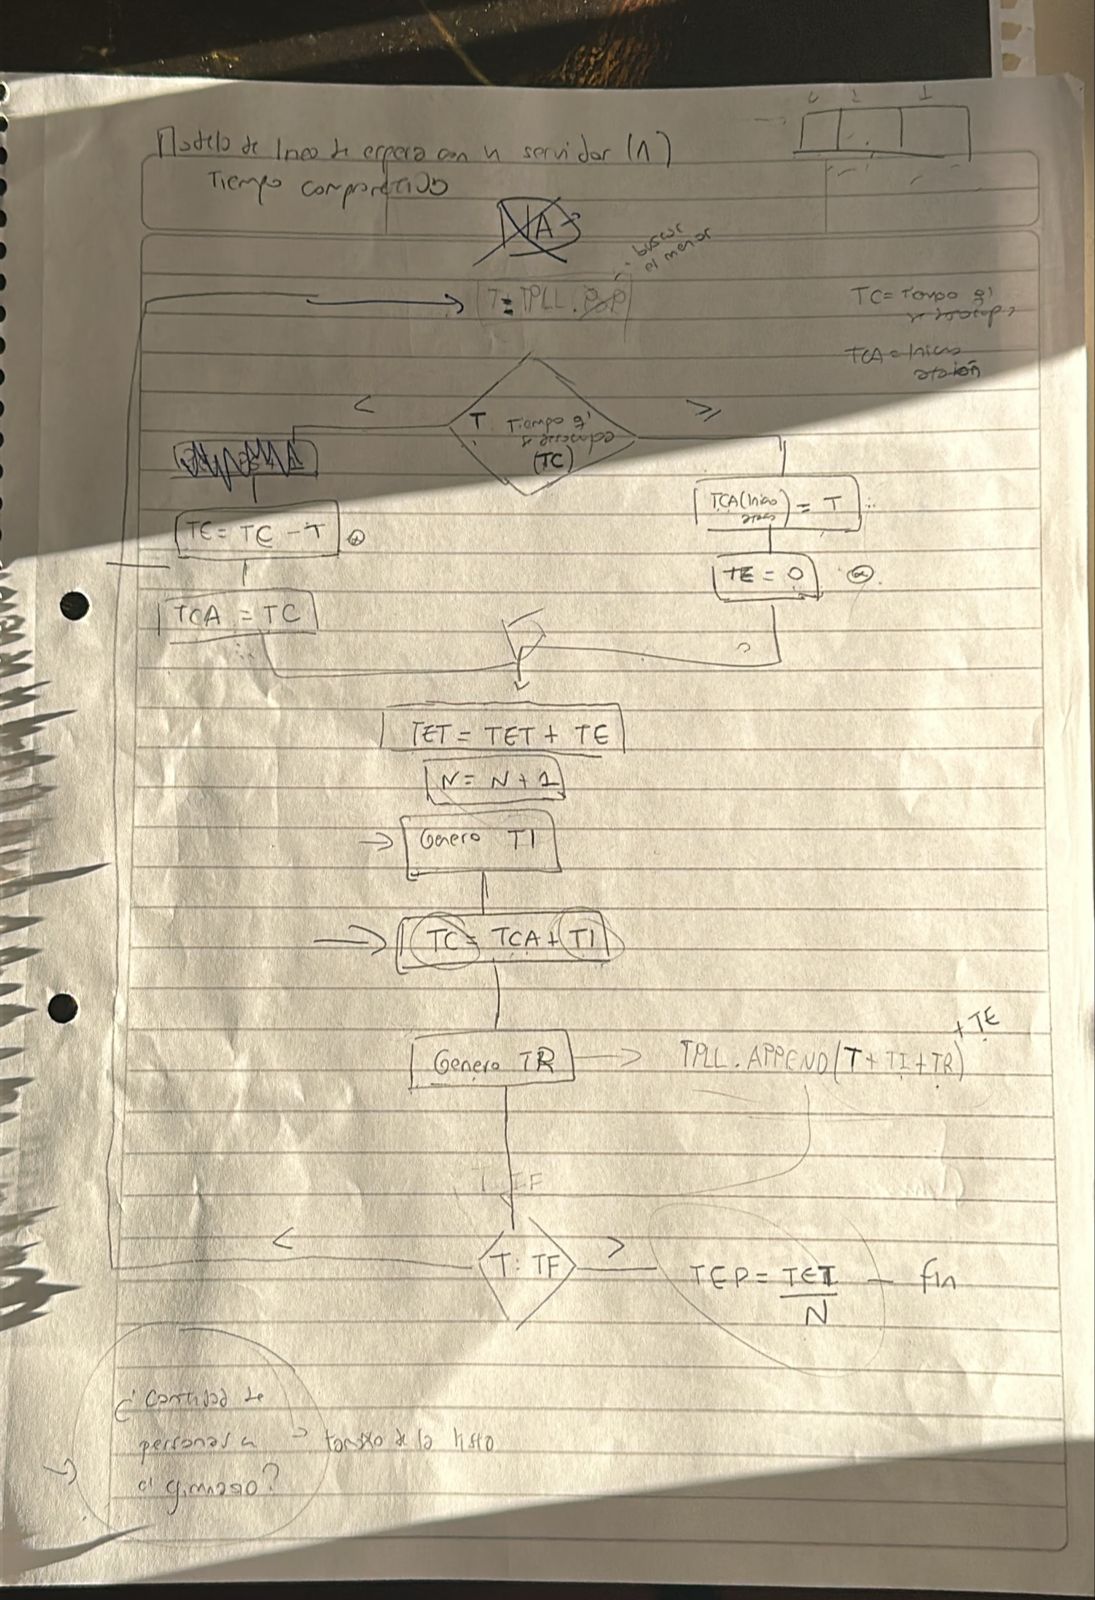 Modelo de linea de espera con un servidor (1)
Tiempo compartido
NA
buscar
el menor
T = TPLL.POP
TC = Tiempo q'
se desocupa
TCA = Inicio
atención
<
≥
T : Tiempo q'
se desocupa
(TC)
TCA (Inicio
) = T
TE = TC - T
TE = 0
TCA = TC
TET = TET + TE
N = N + 1
Genero TI
TC = TCA + TI
+ TE
Genero TR
TPLL.APPEND(T + TI + TR)
<
T : TF
>
TEP = TET
N
fin
¿Cantidad de
personas en
tamaño de la lista
el gimnasio?